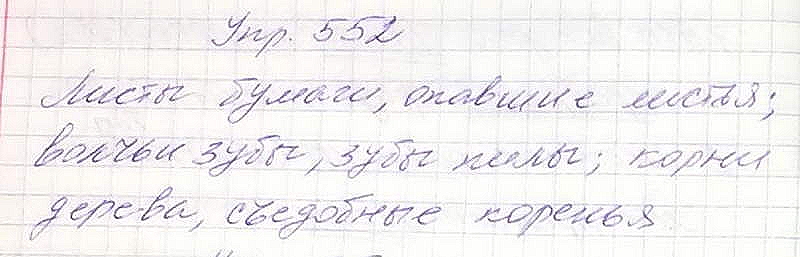 Упр. 552
Листы бумаги, опавшие листья;
волчьи зубы, зубы пилы; корни
дерева, съедобные коренья